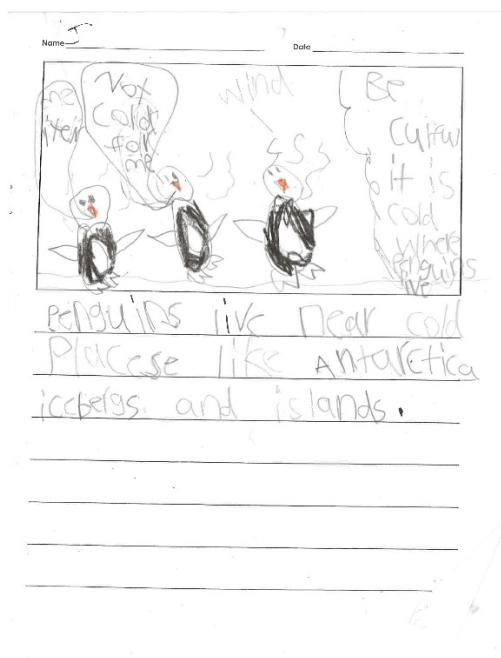 Name J
Date
me
Not
cold
for
me
wind
Be
it is
cold
where
penguins
live
penguins live near cold
Placese like Antarctica
icebergs. and islands.